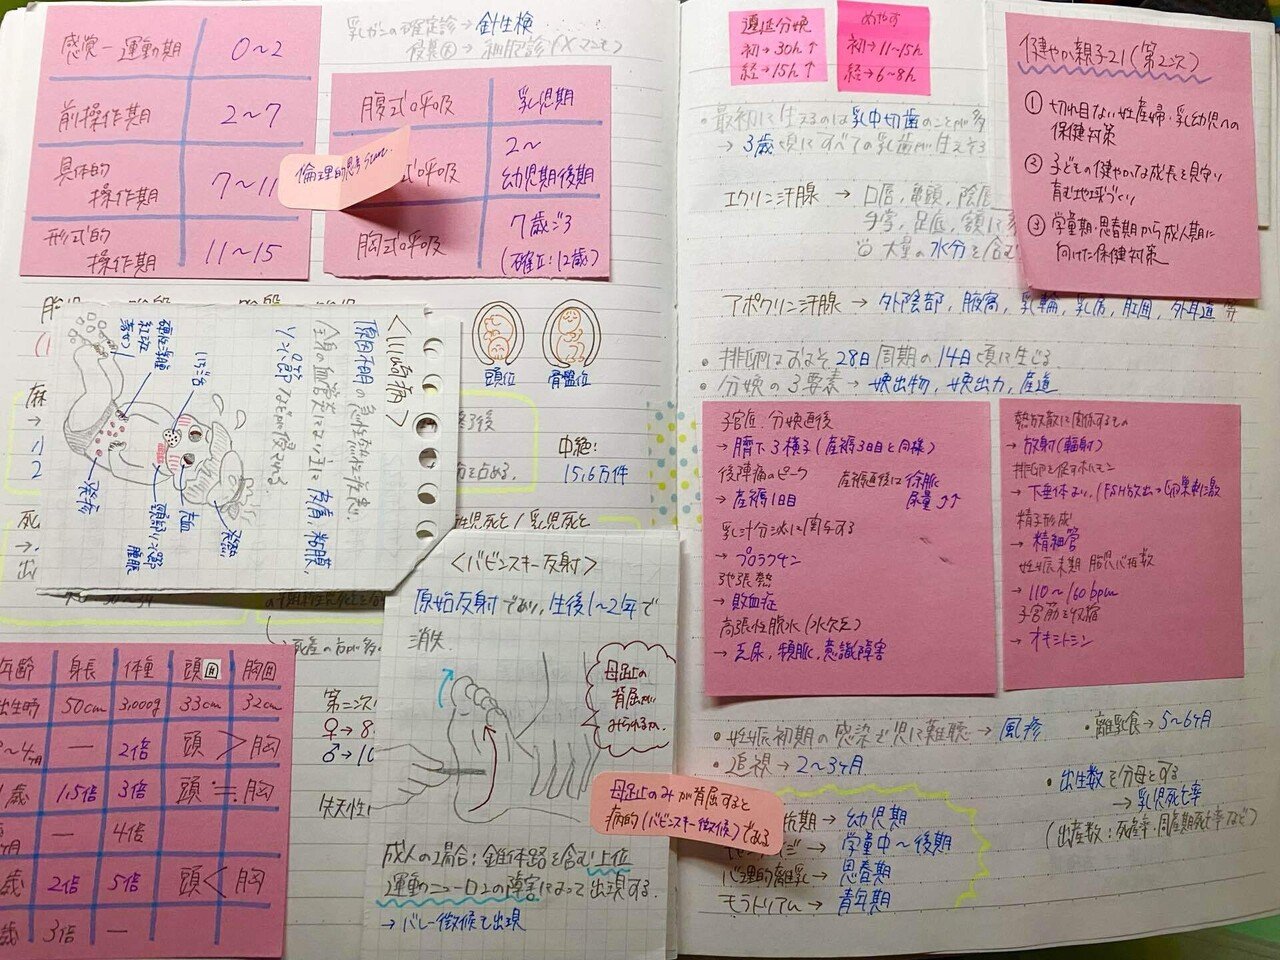 感覚-運動期 0~2
前操作期 2~7
具体的
操作期 7~11
形式的
操作期 11~15
倫理的思考
乳ガンの確定診→針生検
腹式呼吸 乳児期
式呼吸 2~
幼児期後期
胸式呼吸 7歳ごろ
(確立:12歳)
頭位 骨盤位
<川崎病>
原因不明の急性熱性疾患。
全身の血管炎を主に皮膚,粘膜,
リンパ節などが侵される
硬性浮腫
紅斑
いちご舌
発疹
頸部リンパ節
腫脹
充血
発熱
後
を占める。
中絶:
15.6万件
死産の方が多
年齢 身長 体重 頭囲 胸囲
出生時 50cm 3,000g 33cm 32cm
3~4ヶ月 — 2倍 頭 > 胸
1歳 1.5倍 3倍 頭 ≒ 胸
— 4倍
歳 2倍 5倍 頭 < 胸
歳 3倍 —
第二次
♀→8
♂→10
<バビンスキー反射>
原始反射であり,生後1~2年で
消失.
母趾の
背屈が
みられる
母趾のみが背屈すると
病的(バビンスキー徴候)である
成人の場合:錐体路を含む上位
運動ニューロンの障害によって出現する.
→バレー徴候も出現
遷延分娩
初→30h↑
経→15h↑
めやす
初→11~15h
経→6~8h
・最初に生えるのは乳中切歯のことが多
→3歳頃にすべての乳歯が生える
エクリン汗腺 → 口唇,亀頭,陰唇
手掌,足底,額に多
大量の水分を含む
アポクリン汗腺 → 外陰部,腋窩,乳輪,乳房,肛囲,外耳道 等
・排卵はおよそ28日周期の14日頃に生じる
・分娩の3要素→娩出物,娩出力,産道
健やか親子21(第2次)
① 切れ目ない妊産婦・乳幼児への
保健対策
② 子どもの健やかな成長を見守り
育む地域づくり
③ 学童期・思春期から成人期に
向けた保健対策
子宮底:分娩直後
→臍下3横指(産褥3日目と同様)
後陣痛のピーク
→産褥1日目
産褥直後は徐脈
尿量↑↑
乳汁分泌に関与する
→プロラクチン
弛張熱
→敗血症
高張性脱水(水欠乏)
→乏尿,頻脈,意識障害
熱放散に関係するもの
→放射(輻射)
排卵を促すホルモン
→下垂体
精子形成
→精細管
妊娠末期 胎児心拍数
→110~160bpm
子宮筋を収縮
→オキシトシン
・妊娠初期の感染で児に難聴→風疹
・離乳食→5~6ヶ月
・追視→2~3ヶ月
抗期→幼児期
→学童中~後期
心理的離乳→思春期
モラトリアム→青年期
・出生数を分母とする
→乳児死亡率
(出産数:死産率・周産期死亡率など)